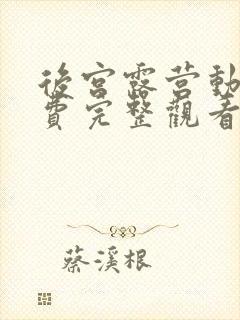 後宮露营動
費完整觀看
蔡溪根